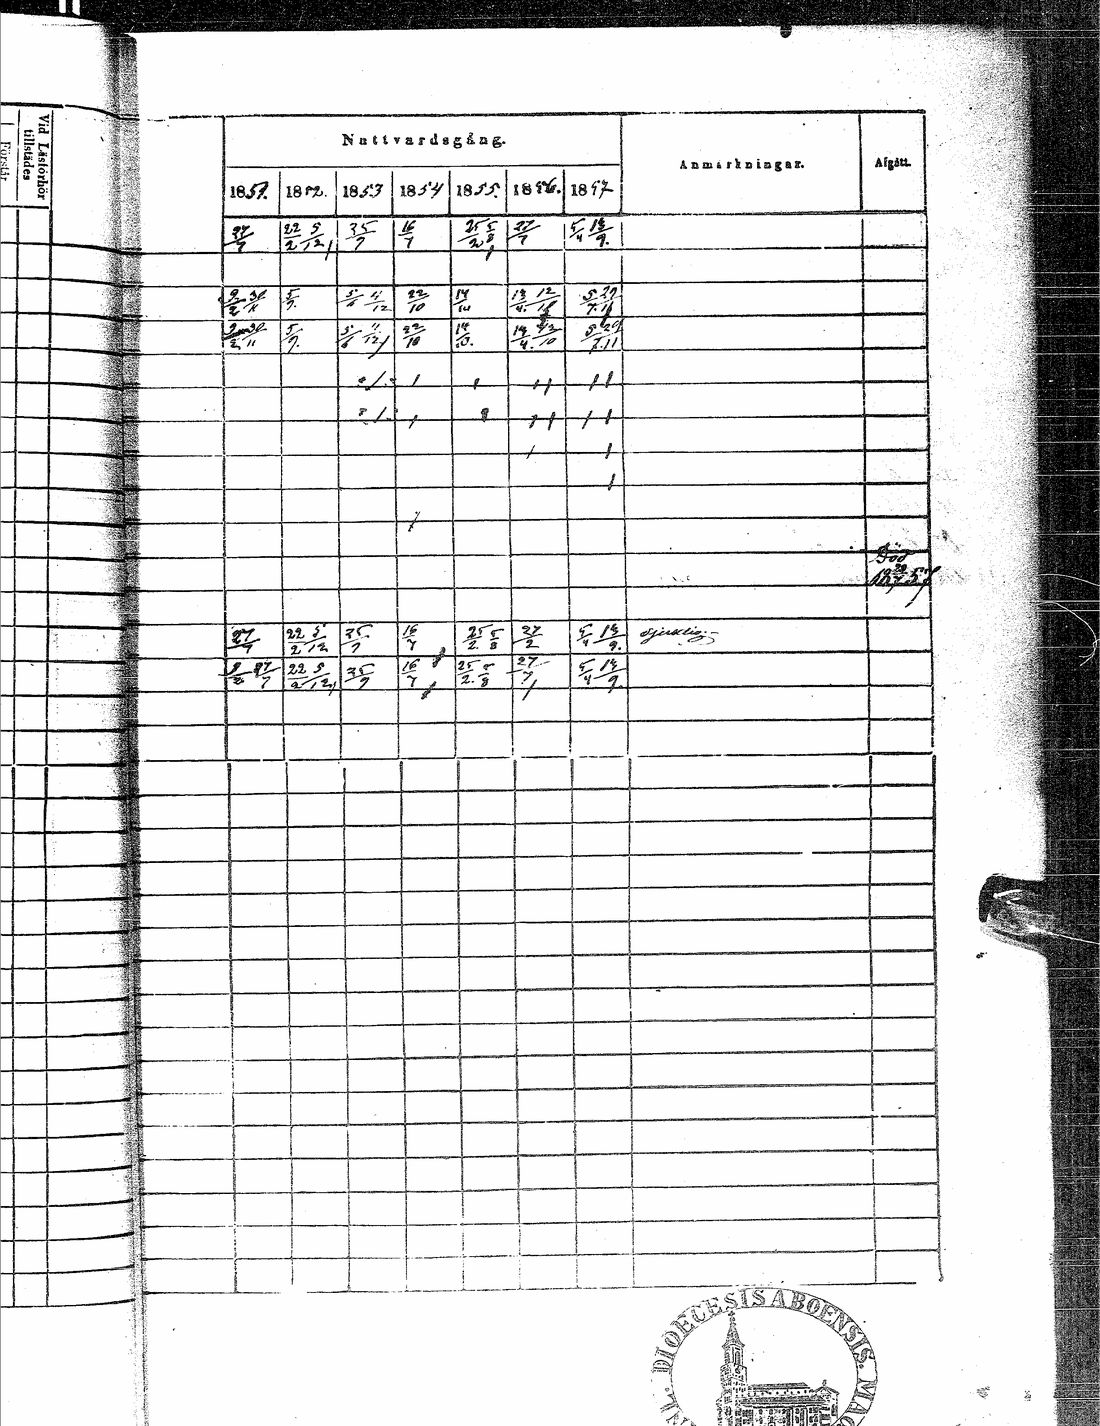 Vid Läsförhör
tillstädes
Förstår
Nattvardsgång.
Anmärkningar.
Afgått.
1851. 1852. 1853 1854 1855. 1856. 1857
27/7 22/2 5/12 25/7 16/7 25/2 5/8 27/7 5/4 13/9.
9/2 30/11 5/7. 5/6 11/12 22/10 14/10 13/4. 12/10 5/7. 29/11
9/2 30/11 5/7. 5/6 11/12 22/10 14/10. 13/4. 12/10 5/7. 29/11
Död
27/7 22/2 5/12 25/7 16/7 25/2. 5/8 27/2 5/4 13/9. sjuklig
9/2 27/7 22/2 5/12 25/7 16/7 25/2. 5/8 27/7 5/4 13/9.
DIOECESIS ABOENSIS. MAG